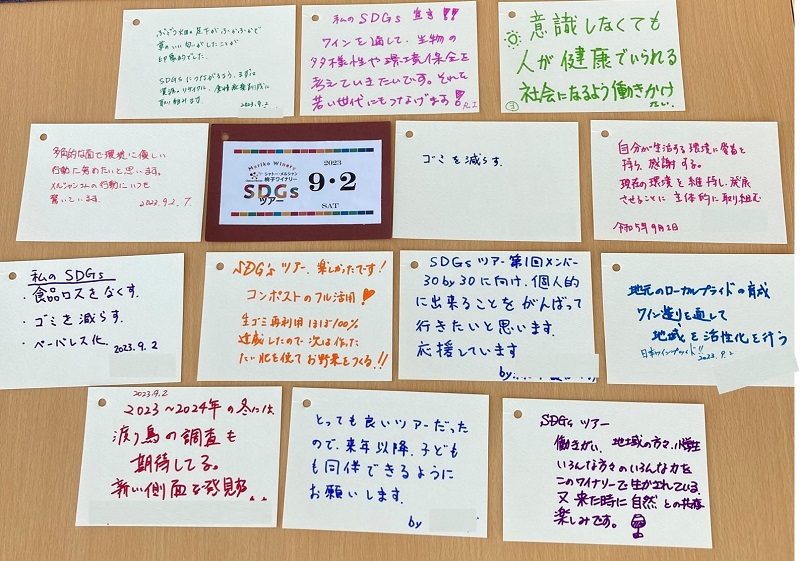 ぶどう畑の足下がふかふかで
草のいい匂いがしたことが
印象的でした。
SDGsにつながるよう、まずは
資源のリサイクル、食糧廃棄削減に
取り組みます。
2023.9.2
私のSDGs 宣言!!
ワインを通して、生物の
多様性や環境保全を
考えていきたいです。それを
若い世代にもつなげます!
意識しなくても
人が健康でいられる
社会になるよう働きかけ
たい。
多角的な面で環境に優しい
行動に努めたいと思います。
メルシャンさんの行動にいつも
驚いています。
2023.9.2.
Mariko Winery
シャトー・メルシャン
椀子ワイナリー
SDGs
ツアー
2023
9・2
SAT
ゴミを減らす.
自分が生活する環境に愛着を
持ち、感謝する。
現在の環境を維持し、発展
させることに主体的に取り組む
令和5年9月2日
私のSDGs
・食品ロスをなくす.
・ゴミを減らす.
・ペーパレス化.
2023.9.2
SDG'sツアー、楽しかったです!
コンポストのフル活用!
生ゴミ再利用ほぼ100%
達成したので次は作った
たい肥を使ってお野菜をつくる!!
SDGsツアー第1回メンバー
30by30に向け、個人的
に出来ることをがんばって
行きたいと思います.
応援しています
by
地元のローカルプライドの育成
ワイン造りを通して
地域を活性化を行う
日本ワインプライド!!
2023.9.2
2023.9.2
2023〜2024年の冬には、
渡り鳥の調査も
期待してる。
新しい側面を発見
とっても良いツアーだった
ので、来年以降、子ども
も同伴できるように
お願いします.
by
SDGsツアー
働きがい、地域の方々、小学生
いろんな方々のいろんな力を
このワイナリーで生かされている.
又来た時に自然との共存
楽しみです。